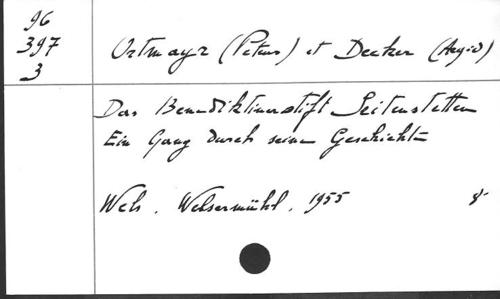 96
397
3
Ortmayr (Petrus) et Decker (Aegid)
Das Benediktinerstift Seitenstetten
Ein Gang durch seine Geschichte
Wels. Welsermühl. 1955 8°